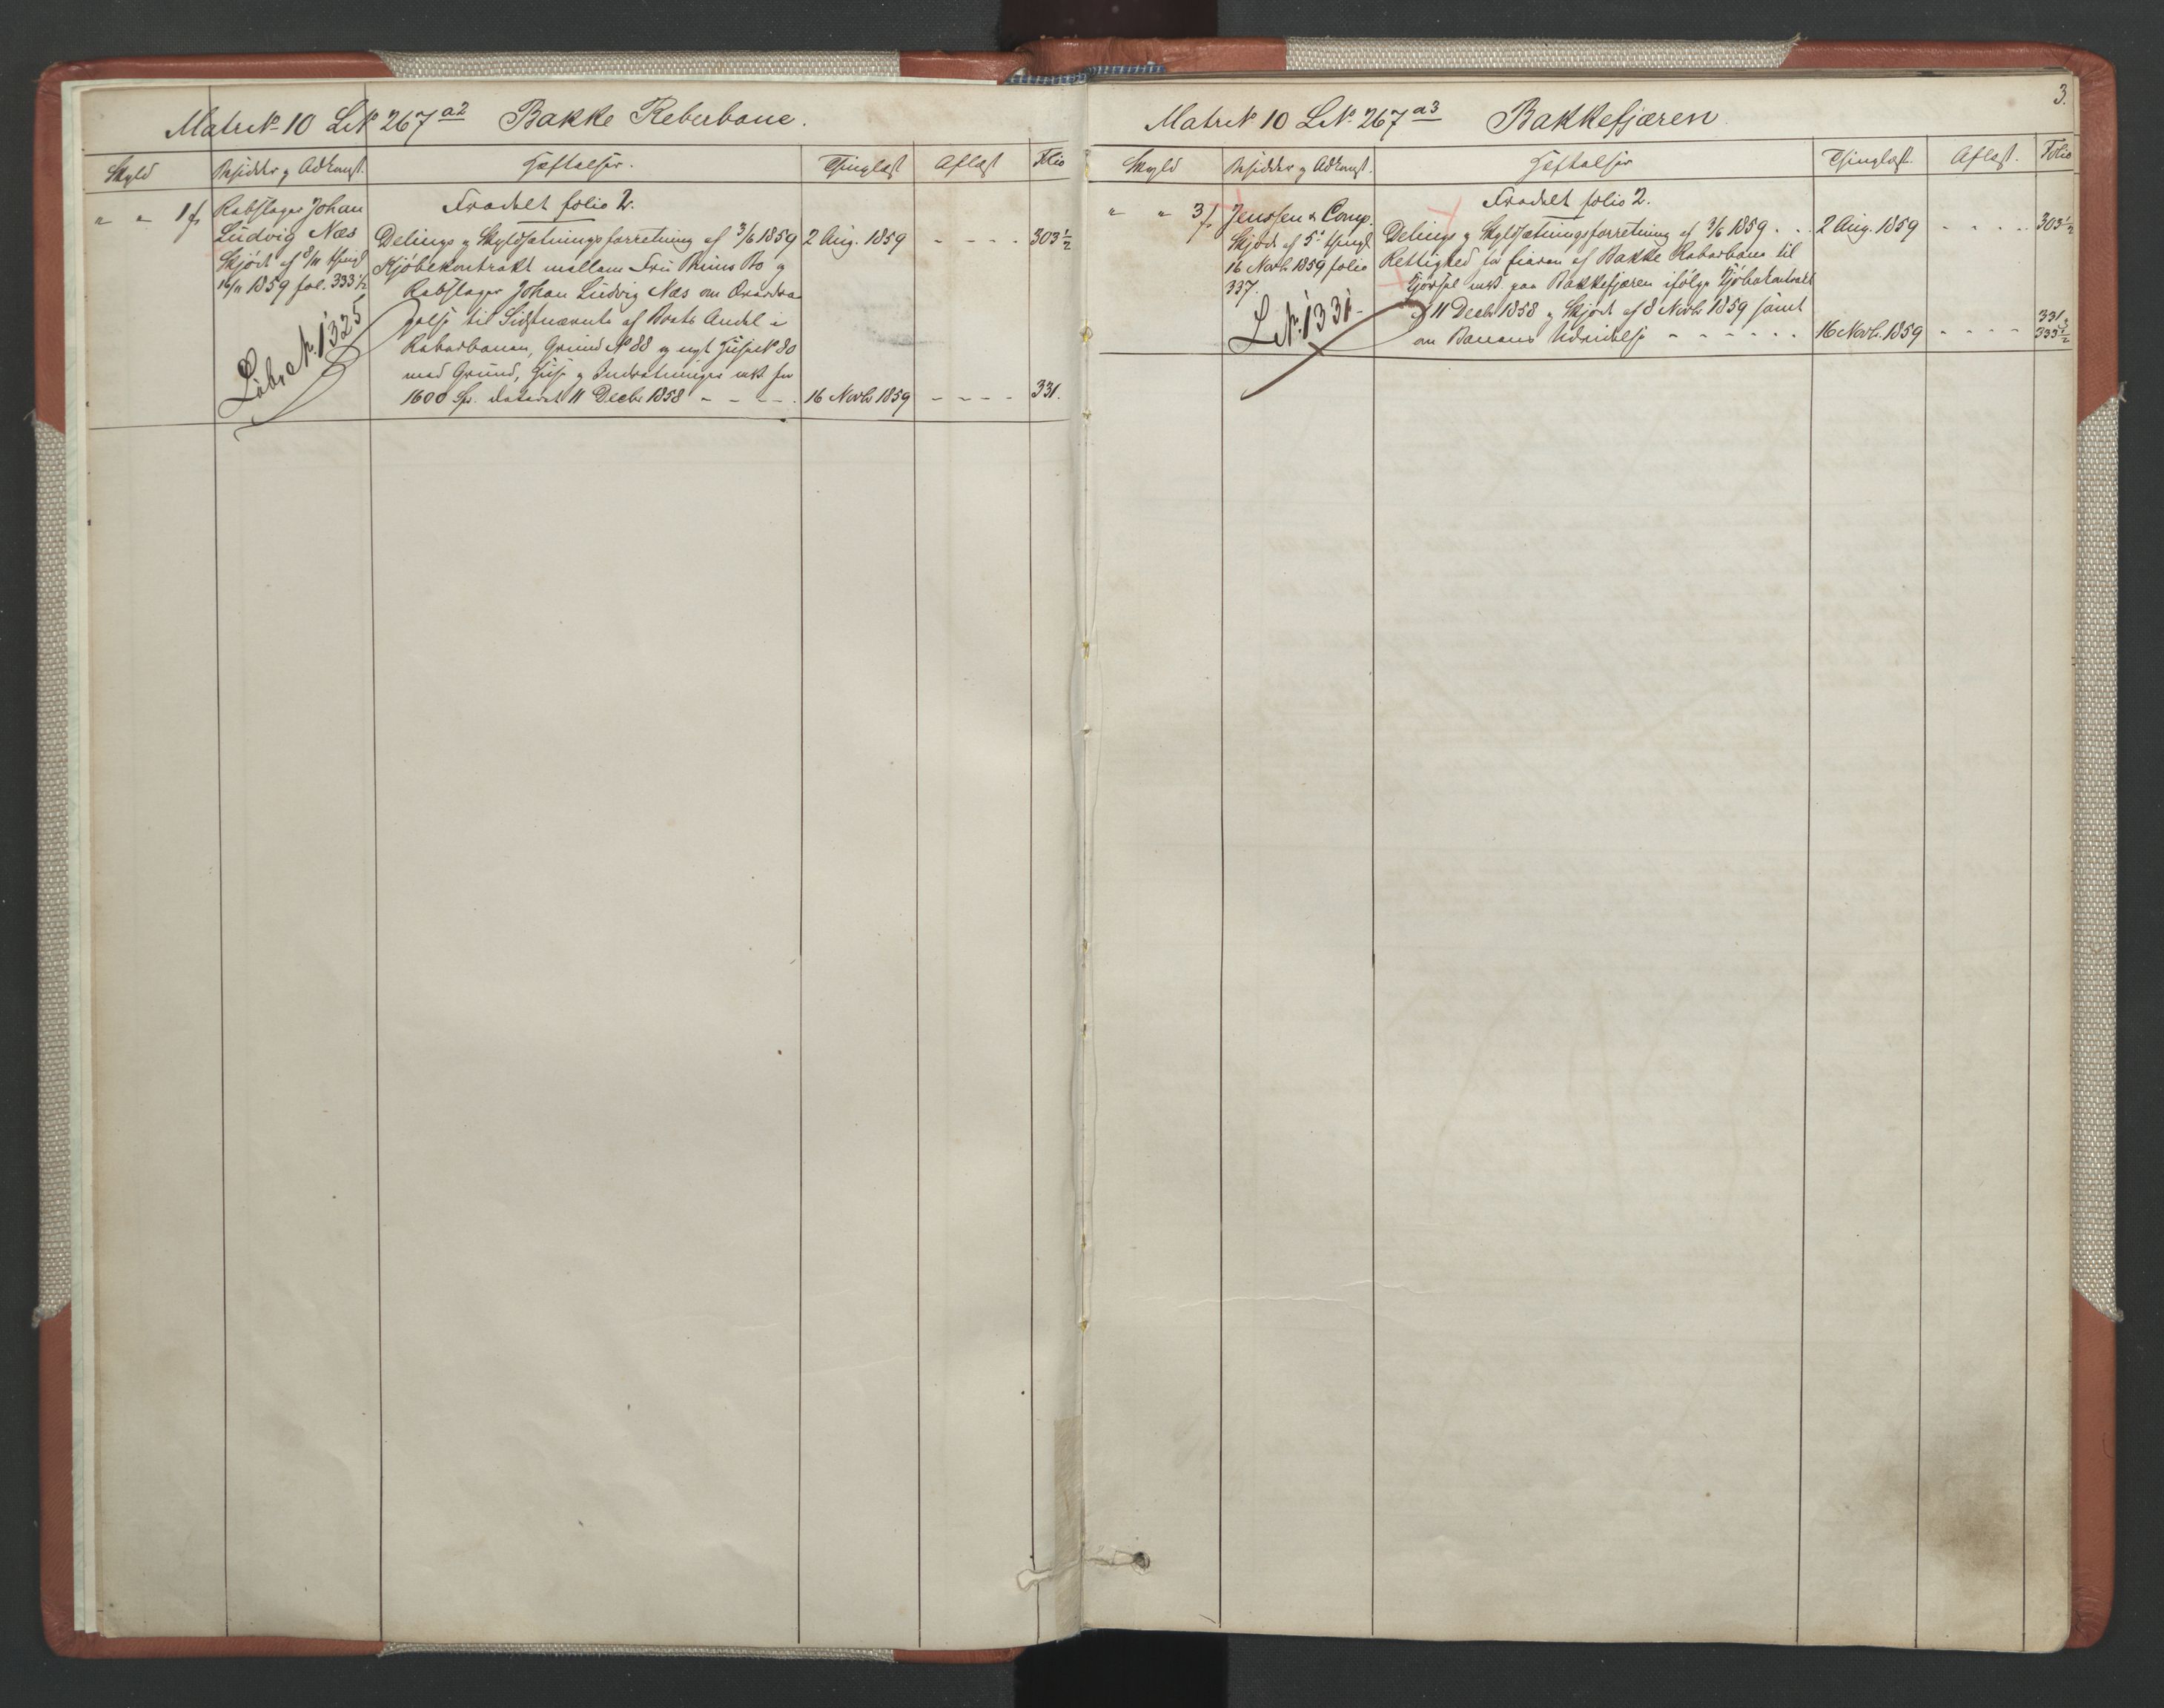 Matr No 10 LNo 267 a2 Bakke Reberbane.
Skyld
Besidder og Adkomst.
Hæftelser.
Thinglæst
Aflæst
Folio
" " 1 f
Rebslager Johan
Ludvig Næs
Skjøde af 8/11 thingl
16/11 1859 fol. 333½
Løbe No 1325
Fradelt folio 2.
Delings og Skyldsætningsforretning af 3/6 1859
2 Aug. 1859
- - - -
303½
Kjøbekontrakt mellem Bo og
Rebslager Johan Ludvig Næs om Overdra
gelse til Sidstnævnte af Boets Andel i
Reberbanen, Grund No 88 og Huse No 80
med Grund, Huse og Indretninger mB for
1600 Sp. dateret 11 Decbr 1858 - - - -
16 Novbr 1859
- - - -
331.
3.
Matr No 10 LNo 267 a3 Bakkefjæren
Skyld
Besidder og Adkomst.
Hæftelser
Thinglæst.
Aflæst.
Folio
" " 3 f
Jenssen & Comp.
Skjøde af 5' thingl
16 Novbr 1859 folio
337.
LNo. 1331-
Fradelt folio 2.
Delings og Skyldsætningsforretning af 3/6 1859 . .
2 Aug. 1859
- - - -
303½
Rettighed for Eieren af Bakke Reberbane til
Kjørsel mB. paa Bakkefjæren ifølge Kjøbekontrakt
af 11 Decbr 1858 og Skjøde af 8 Novbr 1859 samt
om Banens Udvidelse - - - - - -
16 Novbr. 1859
- - - -
331 &
333½